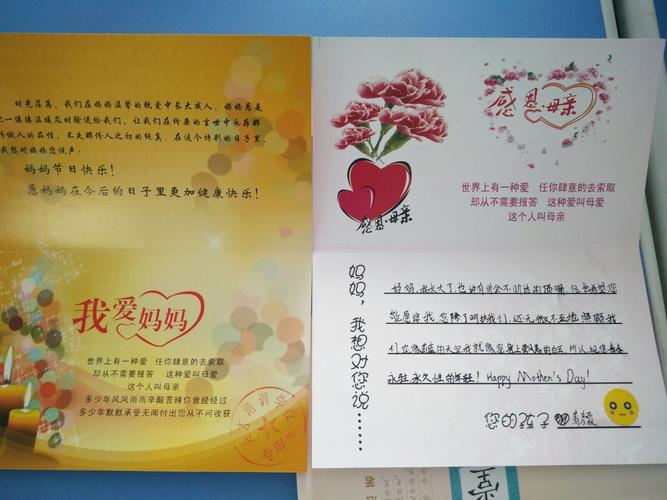 时光荏苒，我们在妈妈温馨的抚爱中长大成人，妈妈总是
一缕缕温暖及时输送给我们，让我们在传奏的尘世中永存那
做人的品性，不失那传人之初的纯真。在这个特别的日子里，
想对妈妈您说声：
妈妈节日快乐！
愿妈妈在今后的日子里更加健康快乐！
我爱妈妈
世界上有一种爱 任你肆意的去索取
却从不需要报答 这种爱叫母爱
这个人叫母亲
多少年风风雨雨辛酸苦辣你曾经经过
多少年默默承受无闻付出您从不问收获
培训
专用章
感恩·母亲
感恩·母亲
世界上有一种爱 任你肆意的去索取
却从不需要报答 这种爱叫母爱
这个人叫母亲
妈妈，我想对您说……
妈妈，我长大了，也许有时会不听话的顶嘴，但也希望您
能原谅我，您除了呵护我们，还无微不至地照顾我
们，您像蔚蓝的天空我就像您
永驻，永久性的年轻！Happy Mother's Day！
您的孩子